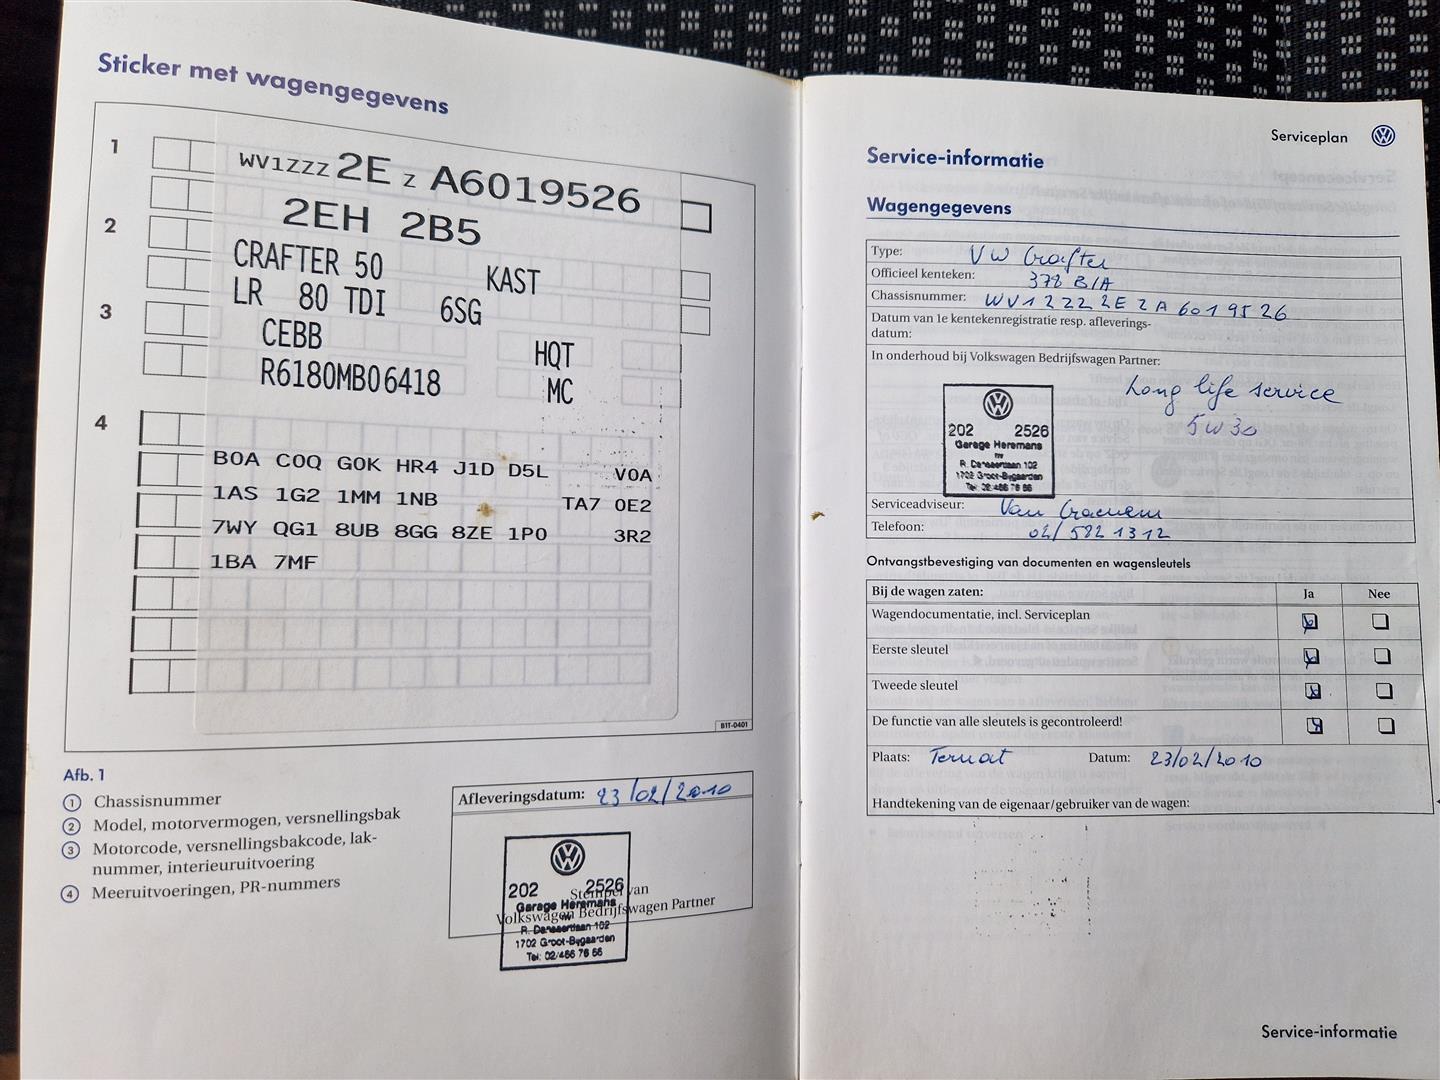 Sticker met wagengegevens
1
WV1ZZZ 2E Z A6019526
2EH 2B5
2
CRAFTER 50 KAST
LR 80 TDI 6SG
3
CEBB HQT
R6180MB06418 MC
4
B0A C0Q G0K HR4 J1D D5L V0A
1AS 1G2 1MM 1NB TA7 0E2
7WY QG1 8UB 8GG 8ZE 1P0 3R2
1BA 7MF
B1T-0401
Afb. 1
1 Chassisnummer
2 Model, motorvermogen, versnellingsbak
3 Motorcode, versnellingsbakcode, lak-
nummer, interieuruitvoering
4 Meeruitvoeringen, PR-nummers
Afleveringsdatum: 23/02/2010
202 2526
Stempel van
Volkswagen Bedrijfswagen Partner
Garage Heremans
nv
R. Dansaertlaan 102
1702 Groot-Bijgaarden
Tel: 02/466 76 66
Serviceplan
Service-informatie
Wagengegevens
Type: VW Crafter
Officieel kenteken: 378 BIA
Chassisnummer: WV1ZZZ2EZA6019526
Datum van 1e kentekenregistratie resp. afleverings-
datum:
In onderhoud bij Volkswagen Bedrijfswagen Partner:
Long life service
5W30
202 2526
Garage Heremans
nv
R. Dansaertlaan 102
1702 Groot-Bijgaarden
Tel: 02/466 76 66
Serviceadviseur: Van Craenem
Telefoon: 02/582 13 12
Ontvangstbevestiging van documenten en wagensleutels
Bij de wagen zaten: Ja Nee
Wagendocumentatie, incl. Serviceplan
Eerste sleutel
Tweede sleutel
De functie van alle sleutels is gecontroleerd!
Plaats: Ternat Datum: 23/02/2010
Handtekening van de eigenaar/gebruiker van de wagen:
Service-informatie